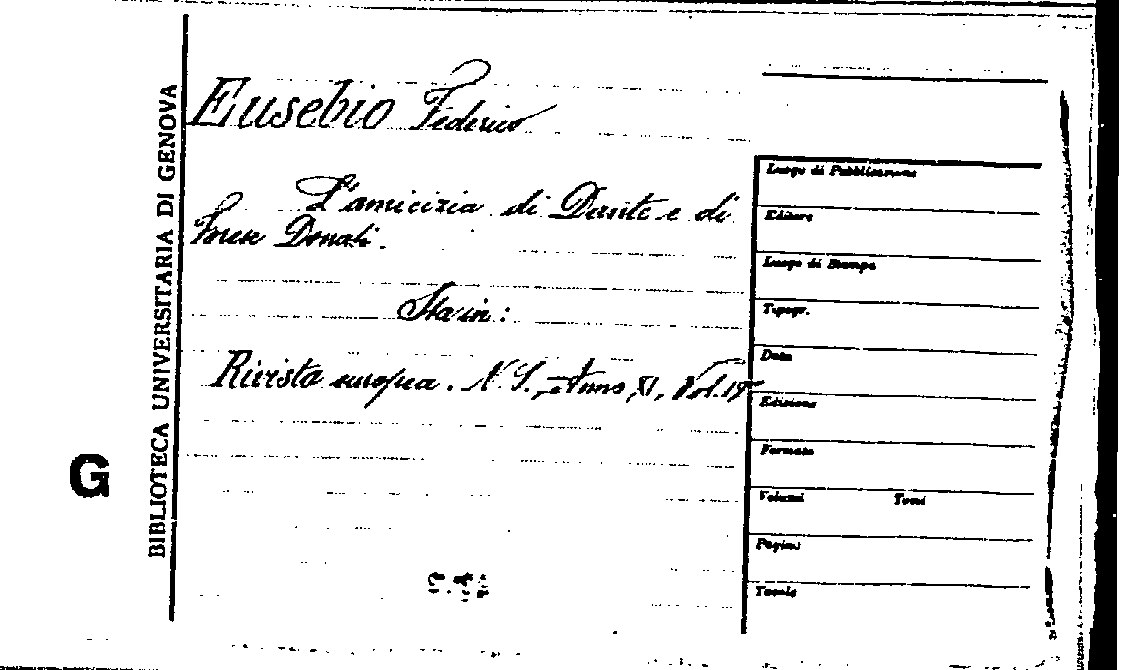 BIBLIOTECA UNIVERSITARIA DI GENOVA
G
Eusebio Federico
L'amicizia di Dante e di
Forese Donati.
Sta in:
Rivista europea. N. S., Anno XI, Vol. 19
Luogo di Pubblicazione
Editore
Luogo di Stampa
Tipogr.
Data
Edizione
Formato
Volumi Tomi
Pagine
Tavole